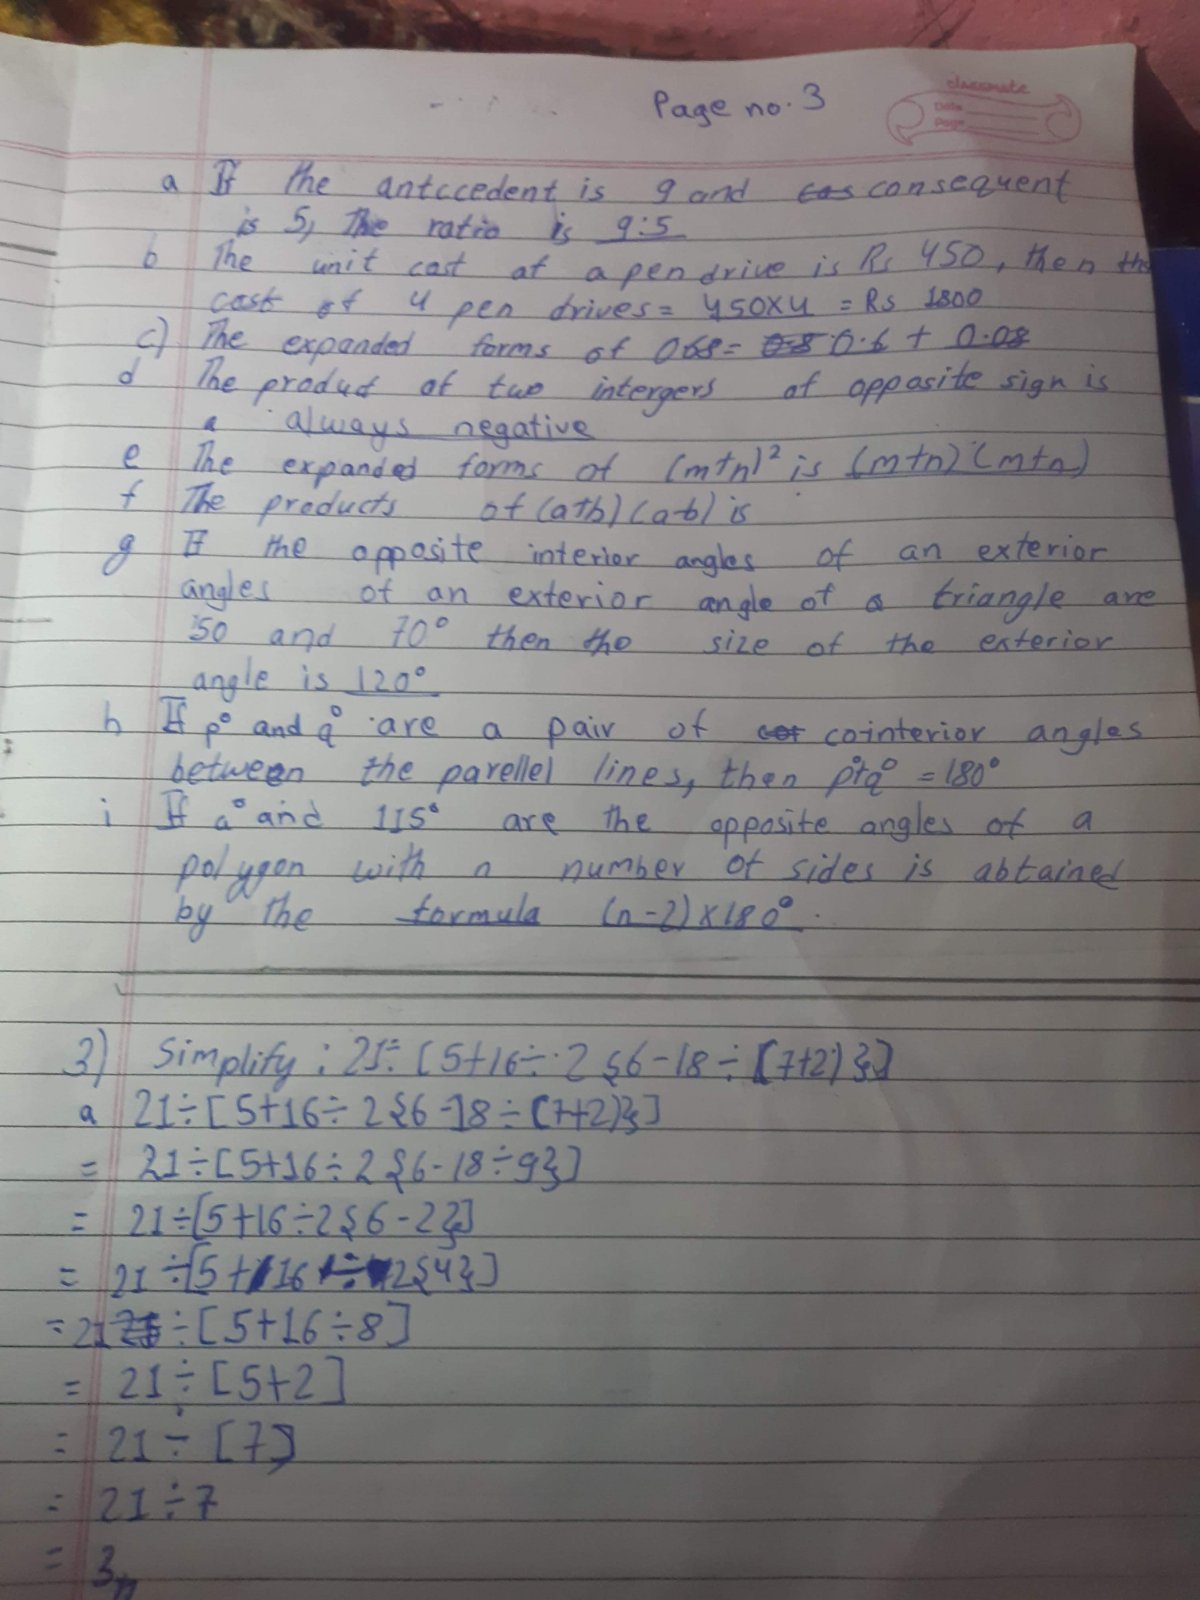 Page no. 3
classmate
Date
Page
a If the antccedent is 9 and consequent
is 5, The ratio is 9:5
b The unit cost of a pen drive is Rs 450, then the
cost of 4 pen drives = 450x4 = Rs 1800
c) The expanded forms of 068 = 0.6 + 0.08
d The product of two intergers of opposite sign is
a always negative
e The expanded forms of (m+n)² is (m+n) (m+n)
f The products of (a+b) (a-b) is
g If the opposite interior angles of an exterior
angles of an exterior angle of a triangle are
50 and 70° then the size of the exterior
angle is 120°
h If p° and q° are a pair of cointerior angles
between the parellel lines, then p°+q° = 180°
i If a° and 115° are the opposite angles of a
polygon with n number of sides is obtained
by the formula (n-2) x 180°.
3) Simplify : 21÷[5+16÷2{6-18÷(7+2)}]
a 21÷[5+16÷2{6-18÷(7+2)}]
= 21÷[5+16÷2{6-18÷9}]
= 21÷[5+16÷2{6-2}]
= 21÷[5+16÷2{4}]
= 21÷[5+16÷8]
= 21÷[5+2]
= 21÷[7]
= 21÷7
= 3